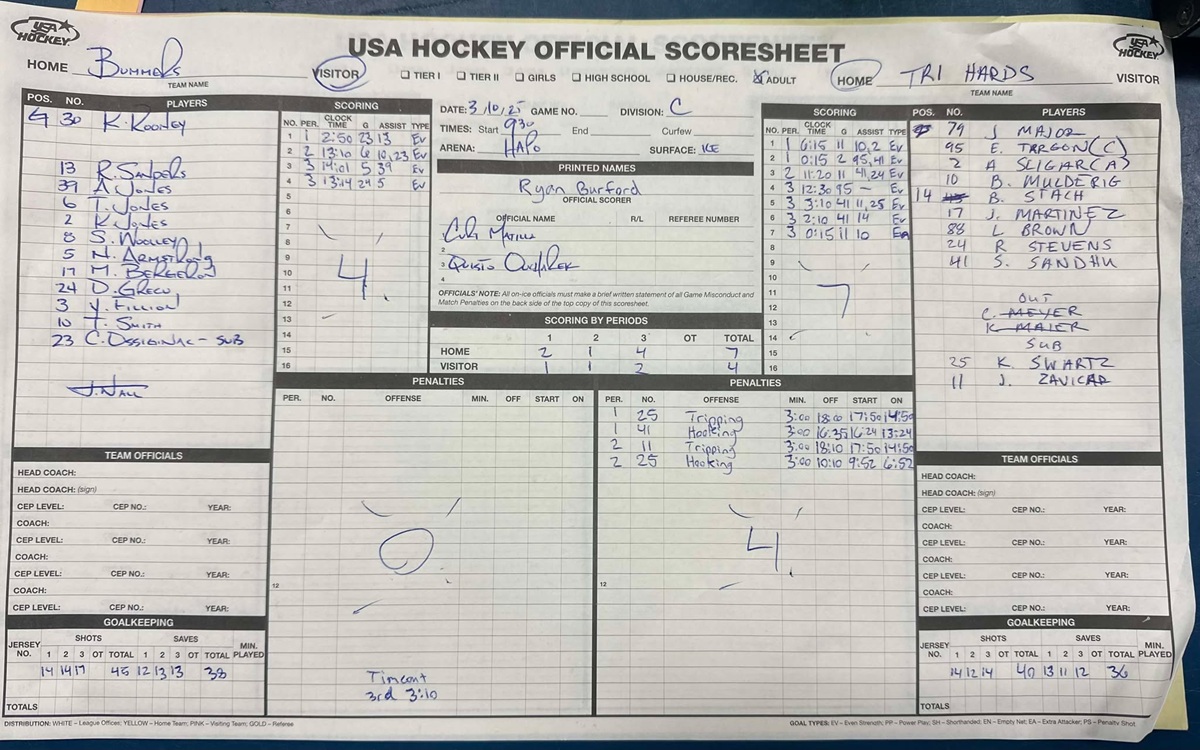 USA HOCKEY
USA HOCKEY OFFICIAL SCORESHEET
USA HOCKEY
HOME Bummers VISITOR
TEAM NAME
☐ TIER I ☐ TIER II ☐ GIRLS ☐ HIGH SCHOOL ☐ HOUSE/REC. ☒ ADULT
HOME TRI HARDS VISITOR
TEAM NAME
POS. NO. PLAYERS
G 30 K. Rooney
13 R. Sanders
39 A. Jones
6 T. Jones
2 K. Jones
8 S. Woolley
5 N. Armstrong
17 M. Bergeron
24 D. Greco
3 Y. Fillion
10 T. Smith
23 C. Ossiginac - SUB
J. Nall
SCORING
NO. PER. CLOCK TIME G ASSIST TYPE
1 1 2:50 23 13 Ev
2 2 13:10 6 10,23 Ev
3 3 14:01 5 39 Ev
4 3 13:14 24 5 Ev
5
6
7
8
9
10
11
12
13
14
15
16
4
DATE: 3/10/25 GAME NO. DIVISION: C
TIMES: Start 930 End Curfew
ARENA: HAPO SURFACE: ICE
PRINTED NAMES
Ryan Burford
OFFICIAL SCORER
OFFICIAL NAME R/L REFEREE NUMBER
2
3
4
OFFICIALS' NOTE: All on-ice officials must make a brief written statement of all Game Misconduct and
Match Penalties on the back side of the top copy of this scoresheet.
SCORING BY PERIODS
1 2 3 OT TOTAL
HOME 2 1 4 7
VISITOR 1 1 2 4
SCORING
NO. PER. CLOCK TIME G ASSIST TYPE
1 1 6:15 11 10,2 Ev
2 1 0:15 2 95,41 Ev
3 2 11:20 11 41,24 Ev
4 3 12:30 95 – Ev
5 3 3:10 41 11,25 Ev
6 3 2:10 41 14 Ev
7 3 0:15 11 10 EA
8
9
10
11
12
13
14
15
16
7
POS. NO. PLAYERS
79 J MAJOR
95 E. TARGON (C)
2 A SLIGAR (A)
10 B. MULDERIG
14 B. STACH
17 J. MARTINEZ
88 L BROWN
24 R STEVENS
41 S. SANDHU
OUT
C. MEYER
K MAIER
SUB
25 K. SWARTZ
11 J. ZAVICAR
PENALTIES
PER. NO. OFFENSE MIN. OFF START ON
0
12
Timeout
3rd 3:10
PENALTIES
PER. NO. OFFENSE MIN. OFF START ON
1 25 Tripping 3:00 18:00 17:50 14:50
1 41 Hooking 3:00 16:35 16:24 13:24
2 11 Tripping 3:00 18:10 17:50 14:50
2 25 Hooking 3:00 10:10 9:52 6:52
4
12
TEAM OFFICIALS
HEAD COACH:
HEAD COACH: (sign)
CEP LEVEL: CEP NO.: YEAR:
COACH:
CEP LEVEL: CEP NO.: YEAR:
COACH:
CEP LEVEL: CEP NO.: YEAR:
COACH:
CEP LEVEL: CEP NO.: YEAR:
GOALKEEPING
JERSEY NO. SHOTS SAVES MIN. PLAYED
1 2 3 OT TOTAL 1 2 3 OT TOTAL
14 14 17 45 12 13 13 38
TOTALS
TEAM OFFICIALS
HEAD COACH:
HEAD COACH: (sign)
CEP LEVEL: CEP NO.: YEAR:
COACH:
CEP LEVEL: CEP NO.: YEAR:
COACH:
CEP LEVEL: CEP NO.: YEAR:
COACH:
CEP LEVEL: CEP NO.: YEAR:
GOALKEEPING
JERSEY NO. SHOTS SAVES MIN. PLAYED
1 2 3 OT TOTAL 1 2 3 OT TOTAL
14 12 14 40 13 11 12 36
TOTALS
DISTRIBUTION: WHITE – League Offices; YELLOW – Home Team; PINK – Visiting Team; GOLD – Referee
GOAL TYPES: EV – Even Strength; PP – Power Play; SH – Shorthanded; EN – Empty Net; EA – Extra Attacker; PS – Penalty Shot